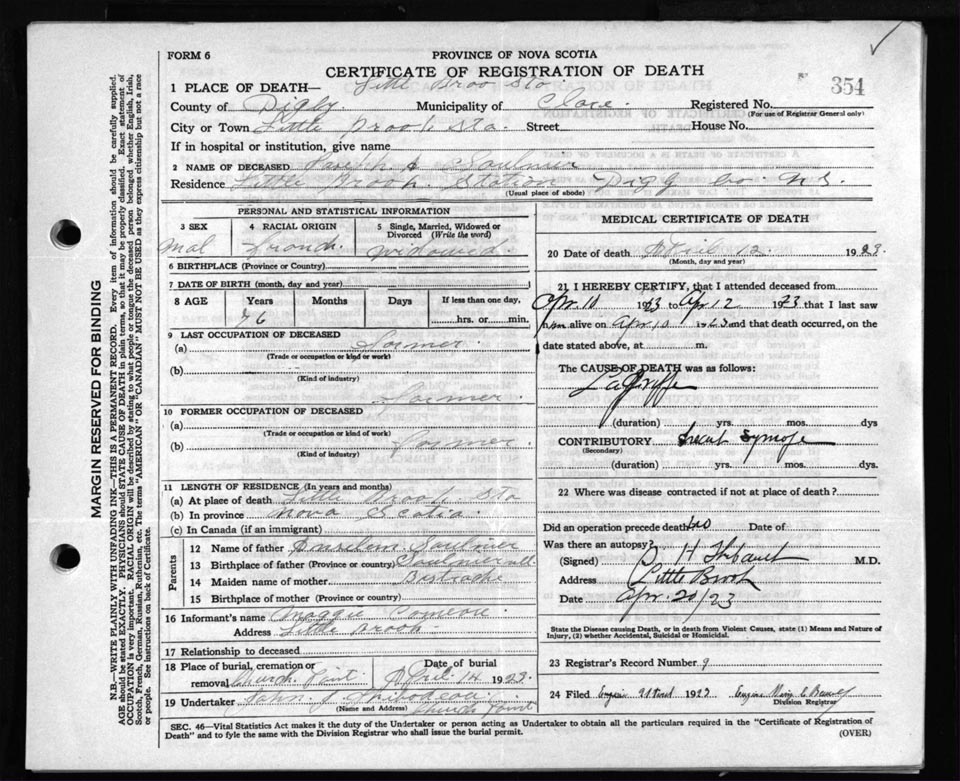 FORM 6
PROVINCE OF NOVA SCOTIA
CERTIFICATE OF REGISTRATION OF DEATH
354
1 PLACE OF DEATH— Little Broo Sta
County of Digby. Municipality of Clare. Registered No.
(For use of Registrar General only)
City or Town Little Brook Sta. Street House No.
If in hospital or institution, give name
2 NAME OF DECEASED Joseph A Saulnier
Residence Little Brook Station Digby Co. N.S.
(Usual place of abode)
PERSONAL AND STATISTICAL INFORMATION
3 SEX
Mal
4 RACIAL ORIGIN
French.
5 Single, Married, Widowed or Divorced (Write the word)
Widowed.
6 BIRTHPLACE (Province or Country)
7 DATE OF BIRTH (month, day and year)
8 AGE Years Months Days If less than one day,
76 hrs. or min.
9 LAST OCCUPATION OF DECEASED
(a) Farmer.
(Trade or occupation or kind of work)
(b)
(Kind of industry)
Farmer.
10 FORMER OCCUPATION OF DECEASED
(a)
(Trade or occupation or kind of work)
(b) Farmer.
(Kind of industry)
11 LENGTH OF RESIDENCE (In years and months)
(a) At place of death Little Brook Sta
(b) In province Nova Scotia
(c) In Canada (if an immigrant)
Parents
12 Name of father Anselm Saulnier
13 Birthplace of father (Province or Country) Saulnierville
14 Maiden name of mother
15 Birthplace of mother (Province or Country)
16 Informant's name Maggie Comeau.
Address Little Brook
17 Relationship to deceased
18 Place of burial, cremation or removal Church Point
Date of burial April. 14 1923
19 Undertaker John J Thibodeau
(Name and Address) Church Point
MEDICAL CERTIFICATE OF DEATH
20 Date of death April 12 1923
(Month, day and year)
21 I HEREBY CERTIFY, that I attended deceased from
Apr. 10 1923 Apr 12 1923 that I last saw
him alive on Apr. 10 1923 and that death occurred, on the
date stated above, at m.
The CAUSE OF DEATH was as follows:
La Grippe
(duration) yrs. mos. dys
CONTRIBUTORY
(Secondary)
(duration) yrs. mos. dys.
22 Where was disease contracted if not at place of death?
Did an operation precede death? no Date of
Was there an autopsy?
(Signed) H Thibault M.D.
Address Little Brook
Date Apr. 20/23
State the Disease causing Death, or in death from Violent Causes, state (1) Means and Nature of
Injury, (2) whether Accidental, Suicidal or Homicidal.
23 Registrar's Record Number 9
24 Filed 1923
Division Registrar
SEC. 46—Vital Statistics Act makes it the duty of the Undertaker or person acting as Undertaker to obtain all the particulars required in the "Certificate of Registration of
Death" and to fyle the same with the Division Registrar who shall issue the burial permit.
(OVER)
MARGIN RESERVED FOR BINDING
N.B.—WRITE PLAINLY WITH UNFADING INK—THIS IS A PERMANENT RECORD. Every item of information should be carefully supplied.
AGE should be stated EXACTLY. PHYSICIANS should STATE CAUSE OF DEATH in plain terms, so that it may be properly classified. Exact statement of
OCCUPATION is very important. RACIAL ORIGIN will be described by stating to what people or tongue the deceased person belonged whether English, Irish,
Scotch, French, German, Russian, Ruthenian, etc. The terms "AMERICAN" OR "CANADIAN" MUST NOT BE USED as they express citizenship but not a race
or people. See instructions on back of Certificate.